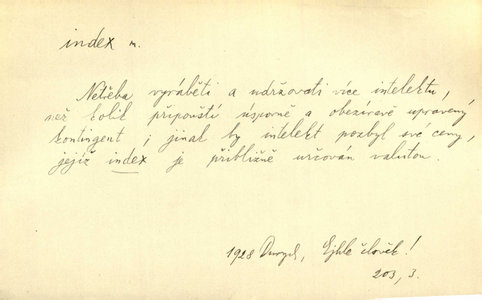 index m.
Netřeba vyráběti a udržovati více intelektu,
než kolik připouští úsporně a obezřevě upravený
kontingent ; jinak by intelekt pozbyl své ceny,
jejíž index je přibližně určován valutou.
1928 Durych, Ejhle člověk !
203, 3.